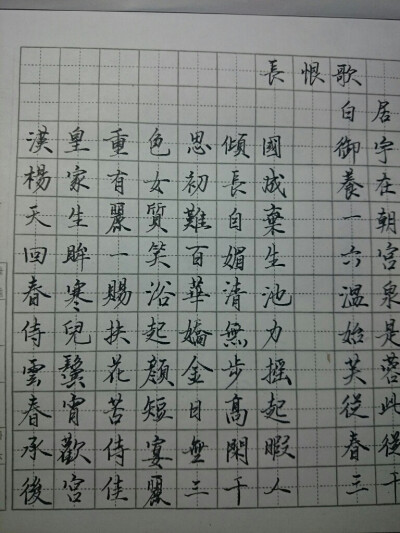 長恨歌
白居
漢皇重色思傾國 御宇
楊家有女初長成 養在
天生麗質難自棄 一朝
回眸一笑百媚生 六宮
春寒賜浴華清池 溫泉
侍兒扶起嬌無力 始是
雲鬢花顏金步搖 芙蓉
春宵苦短日高起 從此
承歡侍宴無閑暇 春從
後宮佳麗三千人 三千